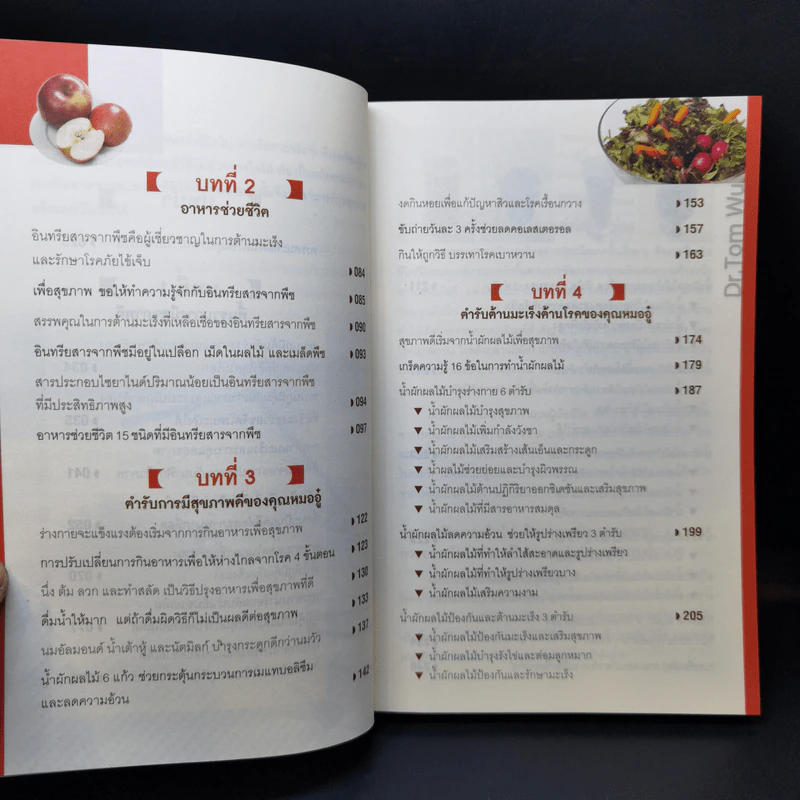 บทที่ 2
อาหารช่วยชีวิต
อินทรียสารจากพืชคือผู้เชี่ยวชาญในการต้านมะเร็ง
และรักษาโรคภัยไข้เจ็บ 084
เพื่อสุขภาพ ขอให้ทำความรู้จักกับอินทรียสารจากพืช 085
สรรพคุณในการต้านมะเร็งที่เหลือเชื่อของอินทรียสารจากพืช 090
อินทรียสารจากพืชมีอยู่ในเปลือก เม็ดในผลไม้ และเมล็ดพืช 093
สารประกอบไซยาไนด์ปริมาณน้อยเป็นอินทรียสารจากพืช
ที่มีประสิทธิภาพสูง 094
อาหารช่วยชีวิต 15 ชนิดที่มีอินทรียสารจากพืช 097
บทที่ 3
ตำรับการมีสุขภาพดีของคุณหมออู๋
ร่างกายจะแข็งแรงต้องเริ่มจากการกินอาหารเพื่อสุขภาพ 122
การปรับเปลี่ยนการกินอาหารเพื่อให้ห่างไกลจากโรค 4 ขั้นตอน 123
นึ่ง ต้ม ลวก และทำสลัด เป็นวิธีปรุงอาหารเพื่อสุขภาพที่ดี 130
ดื่มน้ำให้มาก แต่ถ้าดื่มผิดวิธีก็ไม่เป็นผลดีต่อสุขภาพ 133
นมอัลมอนด์ น้ำเต้าหู้ และนัตมิลก์ บำรุงกระดูกดีกว่านมวัว 137
น้ำผักผลไม้ 6 แก้ว ช่วยกระตุ้นกระบวนการเมแทบอลิซึม
และลดความอ้วน 142
Dr.Tom Wu
งดกินหอยเพื่อแก้ปัญหาสิวและโรคเรื้อนกวาง 153
ขับถ่ายวันละ 3 ครั้งช่วยลดคอเลสเตอรอล 157
กินให้ถูกวิธี บรรเทาโรคเบาหวาน 163
บทที่ 4
ตำรับต้านมะเร็งต้านโรคของคุณหมออู๋
สุขภาพดีเริ่มจากน้ำผักผลไม้เพื่อสุขภาพ 174
เกร็ดความรู้ 16 ข้อในการทำน้ำผักผลไม้ 179
น้ำผักผลไม้บำรุงร่างกาย 6 ตำรับ 187
▼ น้ำผักผลไม้บำรุงสุขภาพ
▼ น้ำผักผลไม้เพิ่มกำลังวังชา
▼ น้ำผักผลไม้เสริมสร้างเส้นเอ็นและกระดูก
▼ น้ำผลไม้ช่วยย่อยและบำรุงผิวพรรณ
▼ น้ำผักผลไม้ต้านปฏิกิริยาออกซิเดชันและเสริมสุขภาพ
▼ น้ำผักผลไม้ที่มีสารอาหารสมดุล
น้ำผักผลไม้ลดความอ้วน ช่วยให้รูปร่างเพรียว 3 ตำรับ 199
▼ น้ำผักผลไม้ที่ทำให้ลำไส้สะอาดและรูปร่างเพรียว
▼ น้ำผักผลไม้ที่ทำให้รูปร่างเพรียวบาง
▼ น้ำผักผลไม้เสริมความงาม
น้ำผักผลไม้ป้องกันและต้านมะเร็ง 3 ตำรับ 205
▼ น้ำผักผลไม้ป้องกันมะเร็งและเสริมสุขภาพ
▼ น้ำผักผลไม้บำรุงรังไข่และต่อมลูกหมาก
▼ น้ำผักผลไม้ป้องกันและรักษามะเร็ง